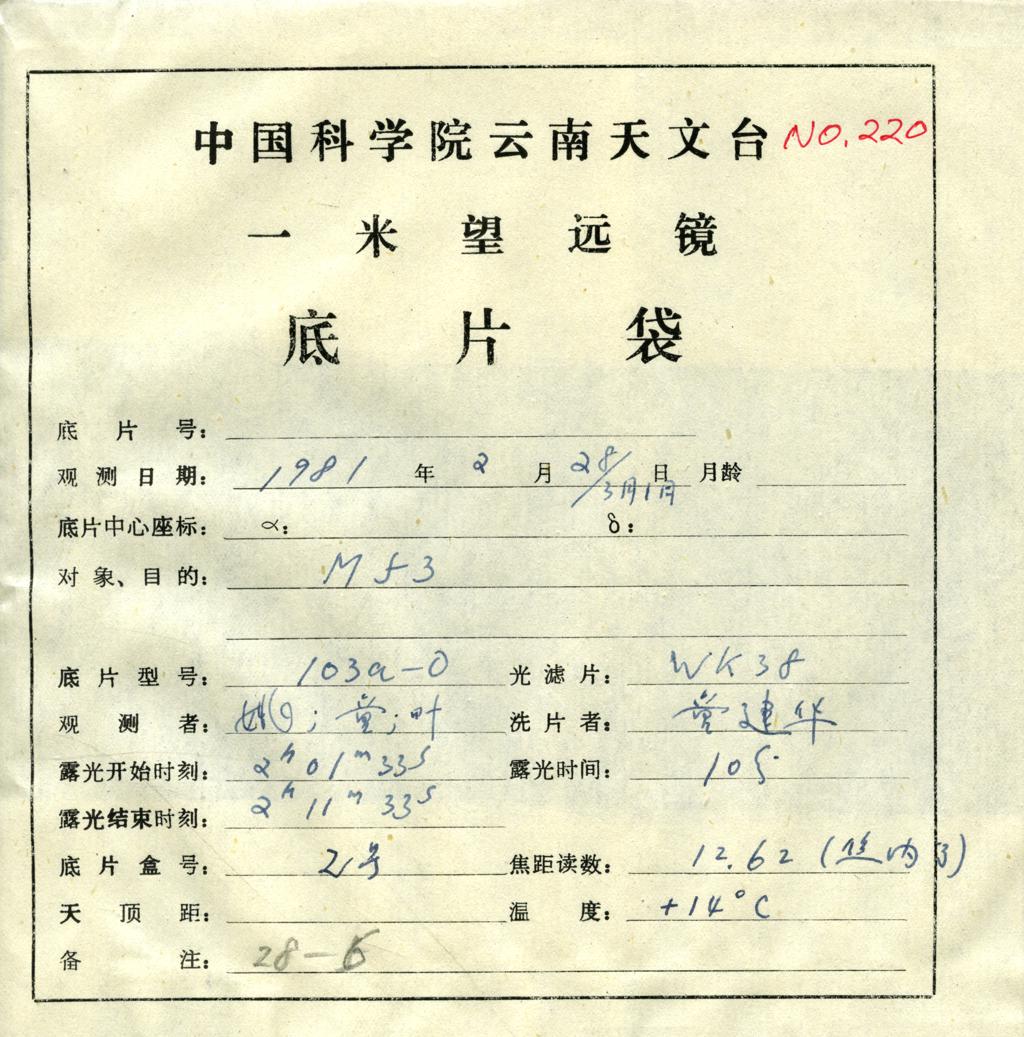 中国科学院云南天文台 NO.220
一米望远镜
底片袋
底片号：
观测日期： 1981 年 2 月 28/3月1月 日 月龄
底片中心座标： α： δ：
对象、目的： M53
底片型号： 103a-O 光滤片： WK38
观测者： ；；叶 洗片者： 建华
露光开始时刻： 2h 01m 33s 露光时间： 10
露光结束时刻： 2h 11m 33s
底片盒号： 2号 焦距读数： 12.62 (焦内
天顶距： 温度： +14°C
备注： 28-6